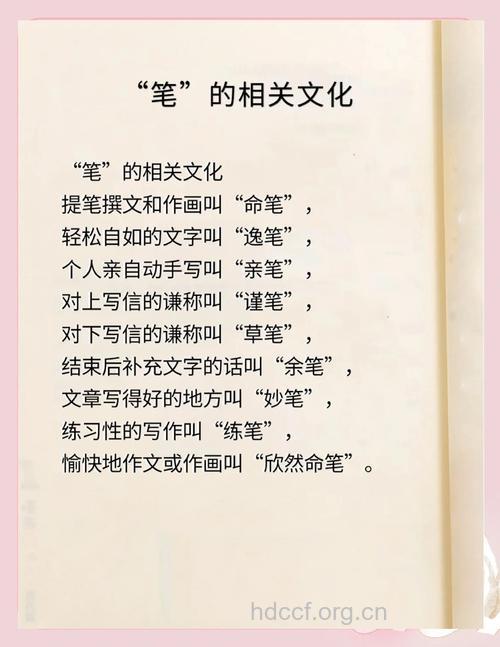 “笔”的相关文化
“笔”的相关文化
提笔撰文和作画叫“命笔”，
轻松自如的文字叫“逸笔”，
个人亲自动手写叫“亲笔”，
对上写信的谦称叫“谨笔”，
对下写信的谦称叫“草笔”，
结束后补充文字的话叫“余笔”，
文章写得好的地方叫“妙笔”，
练习性的写作叫“练笔”，
愉快地作文或作画叫“欣然命笔”。
hdccf.org.cn